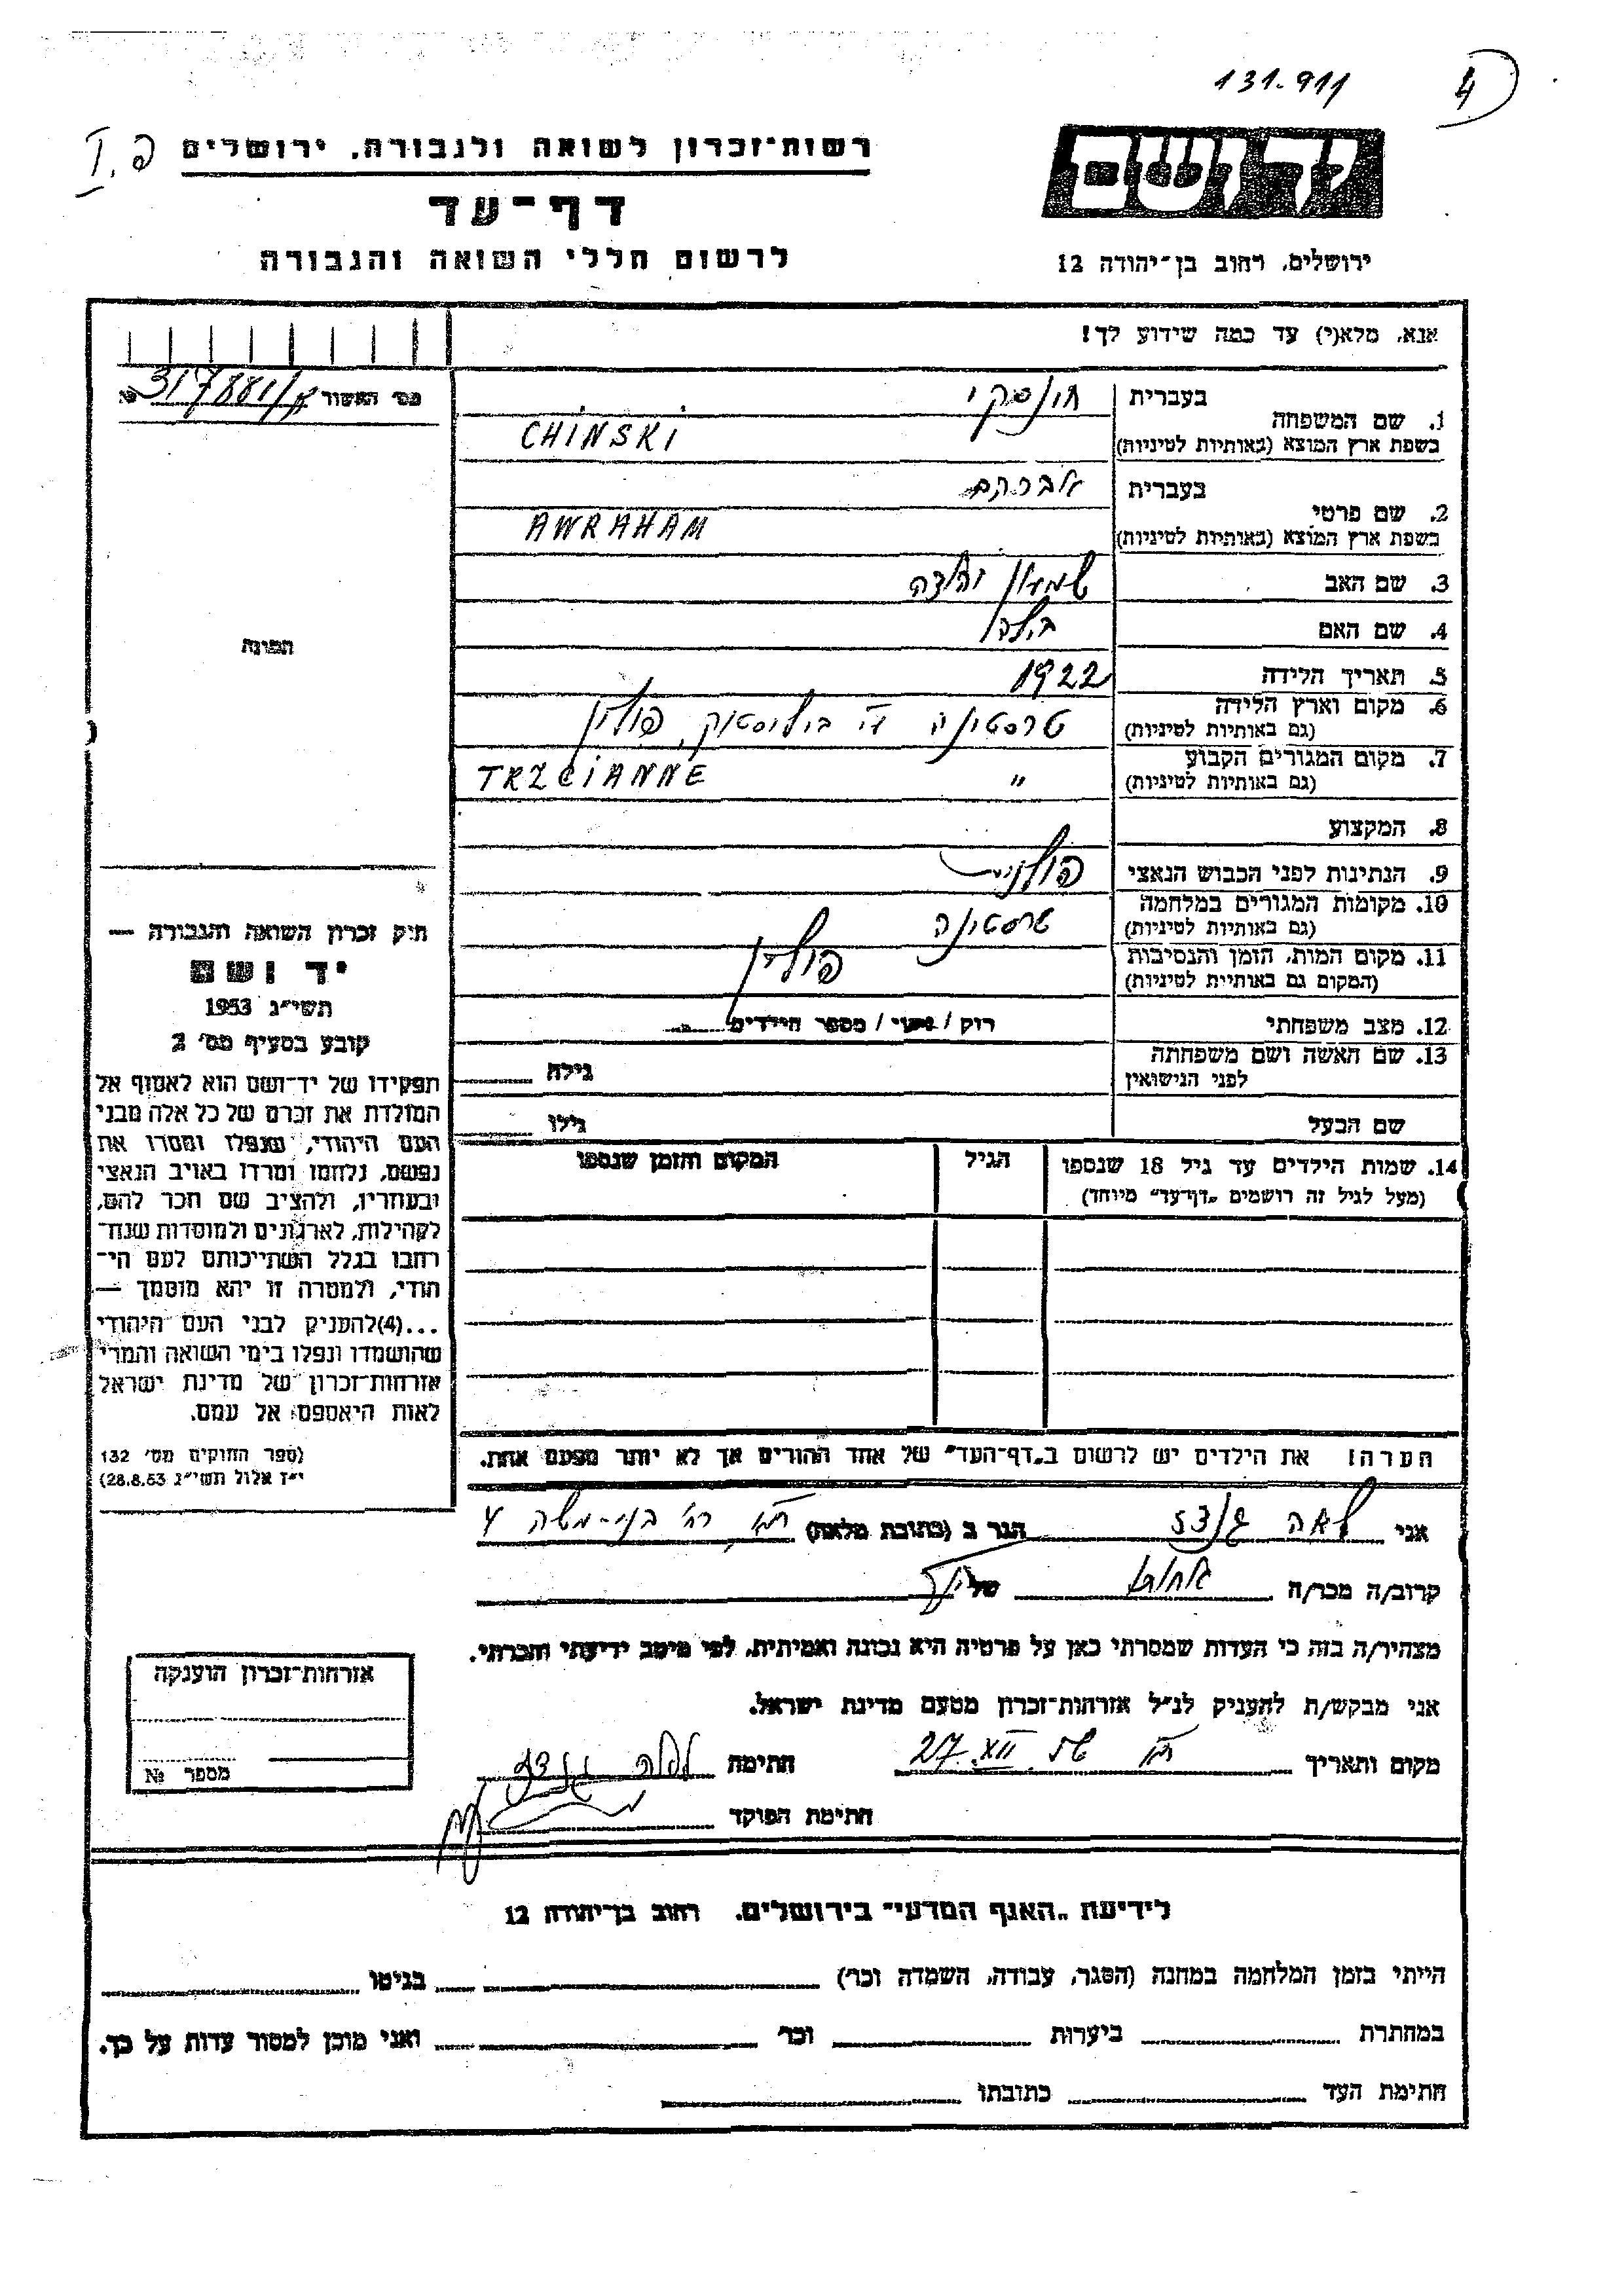 131.911
4
רשות־זכרון לשואה ולגבורה, ירושלים
דף־עד
לרשום חללי השואה והגבורה
יד ושם
ירושלים, רחוב בן־יהודה 12
אנא, מלא(י) עד כמה שידוע לך!
מס׳ האשור
№ 317881/
1. שם המשפחה
בעברית
בשפת ארץ המוצא (באותיות לטיניות)
CHINSKI
2. שם פרטי
בעברית אברהם
בשפת ארץ המוצא (באותיות לטיניות)
AWRAHAM
3. שם האב שמעון
4. שם האם
5. תאריך הלידה 1922
6. מקום וארץ הלידה
(גם באותיות לטיניות)
טרסטינה ביליסטוק, פולין
7. מקום המגורים הקבוע
(גם באותיות לטיניות)
" TRZCIANNE
8. המקצוע
9. הנתינות לפני הכבוש הנאצי פולנית
10. מקומות המגורים במלחמה
(גם באותיות לטיניות)
טרסטינה
11. מקום המות, הזמן והנסיבות
(המקום גם באותיות לטיניות)
פולין
12. מצב משפחתי
רוק / נשוי / מספר הילדים
13. שם האשה ושם משפחתה
לפני הנישואין
גילה
שם הבעל
גילו
14. שמות הילדים עד גיל 18 שנספו
(מעל לגיל זה רושמים „דף־עד" מיוחד)
הגיל
המקום והזמן שנספו
הערה: את הילדים יש לרשום ב„דף־העד" של אחד ההורים אך לא יותר מפעם אחת.
התמונה
חוק זכרון השואה והגבורה —
יד ושם
תשי״ג 1953
קובע בסעיף מס׳ 2
תפקידו של יד־ושם הוא לאסוף אל
המולדת את זכרם של כל אלה מבני
העם היהודי, שנפלו ומסרו את
נפשם, נלחמו ומרדו באויב הנאצי
ובעוזריו, ולהציב שם וזכר להם,
לקהילות, לארגונים ולמוסדות שנח־
רבו בגלל השתייכותם לעם הי־
הודי, ולמטרה זו יהא מוסמך —
...(4)להעניק לבני העם היהודי
שהושמדו ונפלו בימי השואה והמרי
אזרחות־זכרון של מדינת ישראל
לאות היאספם אל עמם.
(ספר החוקים מס׳ 132
י״ז אלול תשי״ג 28.8.53)
אני לאה הגר ב (כתובת מלאה) רח׳ בני־משה 4
קרוב/ה מכר/ה של
מצהיר/ה בזה כי העדות שמסרתי כאן על פרטיה היא נכונה ואמיתית, לפי מיטב ידיעתי והכרתי.
אני מבקש/ת להעניק לנ״ל אזרחות־זכרון מטעם מדינת ישראל.
מקום ותאריך 27.XII חתימה
חתימת הפוקד
אזרחות־זכרון הוענקה
מספר №
לידיעת „האגף המדעי" בירושלים, רחוב בן־יהודה 12
הייתי בזמן המלחמה במחנה (הסגר, עבודה, השמדה וכו׳) בגיטו
במחתרת ביערות וכו׳ ואני מוכן למסור עדות על כך.
חתימת העד כתובתו